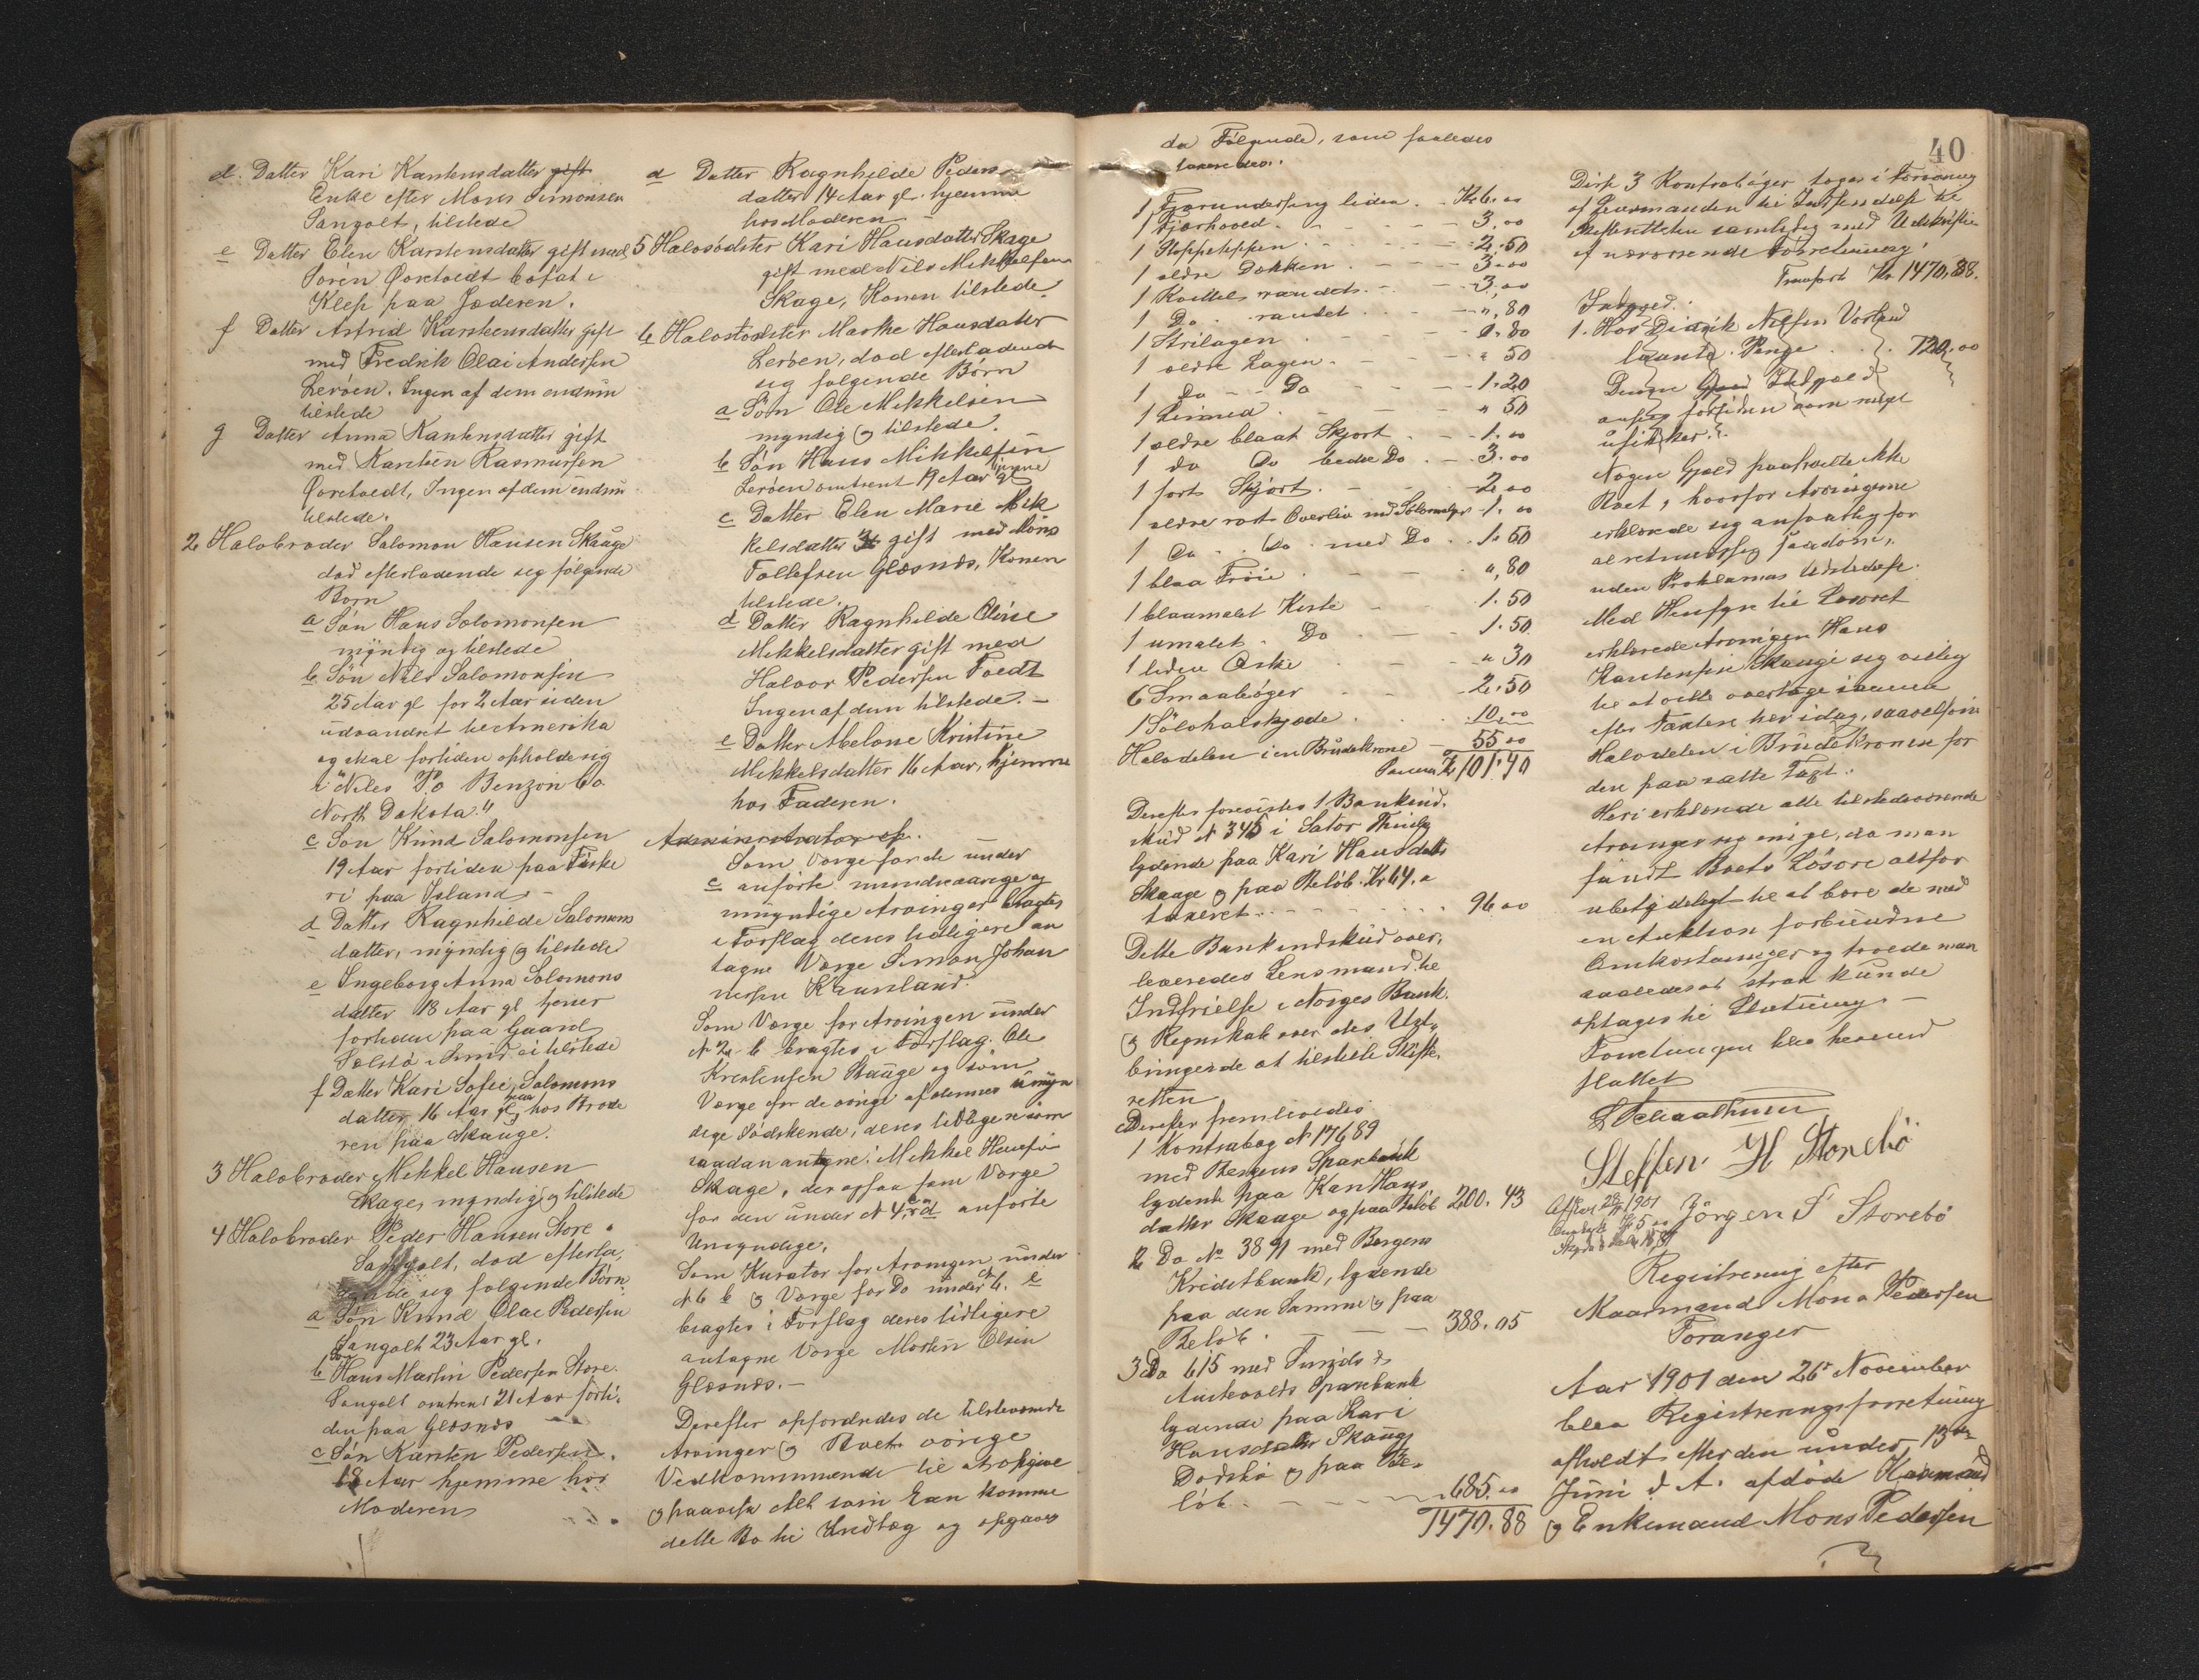 d. Datter Kari Karstensdatter gift
Enke efter Mons Simonsen
Sangolt, tilstede
e Datter Elen Karstensdatter gift med
Sören Öxetvedt bosat i
Klep paa Jæderen.
f Datter Astrid Karstensdatter gift
med Fredrik Olai Andersen
Leröen. Ingen af dem endnu
tilstede
g Datter Anna Karstensdatter gift
med Karsten Rasmussen
Öxetvedt, Ingen af dem endnu
tilstede.
2 Halvbroder Salomon Hansen Skauge
död efterladende sig følgende
Børn
a Sön Hans Solomonsen
myndig og tilstede
b Sön Nils Salomonsen
25 Aar gl for 2 Aar siden
udvandret til Amerika
og skal fortiden opholde sig
i "Niles P.o Benzon Co.
North Dakota."
c Sön Knud Salomonsen
19 Aar fortiden paa Fiske
ri paa Island -
d Datter Ragnhilde Salomons
datter, myndig og tilstede
e Ingeborg Anna Solomons
datter 18 Aar gl tjener
fortiden paa Gaard
i Sund ei tilstede
f Datter Kari Sofie Salomons
datter, 16 Aar gl, hos Brode
ren paa Skauge.
3 Halvbroder Mikkel Hansen
Skage, myndig og tilstede
4 Halvbroder Peder Hansen Store
Sangolt, död efterla,
sig følgende Børn
a Sön Knud Olai Pedersen
Sangolt 23 Aar gl.
b Sön Hans Martin Pedersen Store
Sangolt omtrent 21 Aar forti-
den paa Glesnæs
c Sön Karsten Pedersen.
18 Aar hjemme hos
Moderen
d Datter Ragnhilde Peders
datter 14 Aar gl. hjemme
hos Moderen -
5 Halvsödster Kari Hansdatter Skage
gift med Nils Mikkelsen
Skage, Konen tilstede
6 Halvsödster Marthe Hansdatter
Leröen, död efterladende
sig følgende Børn
a Sön Ole Mikkelsen
myndig og tilstede.
b Sön Hans Mikkelsen
Leröen omtrent 19 Aar gl
c Datter Elen Marie Mik
kelsdatter gift med Mons
Tollefsen Glesnæs, Konen
tilstede.
d Datter Ragnhilde Oline
Mikkelsdatter gift med
Halvor Pedersen Tvedt
Ingen af dem tilstede. -
e Datter Abelone Kristine
Mikkelsdatter 16 Aar, hjemme
hos Faderen.
Administrator ef.
Som Værge for de under
c anförte mindreaarige og
umyndige Arvinger bragtes
i Forslag deres tidligere an
tagne Værge Simon Johan
nesen Kausland.
Som Værge for Arvingen under
N 2 b bragtes i Forslag Ole
Krestensen Skauge og som
Værge for de övrige af dennes umyn
dige Södskende, deres tidligere som
saadan antagne: Mikkel Hansen
Skage, der ogsaa som Værge
for den under N 4, c og d anförte
Umyndige.
Som Kurator for Arvingen under
N 6 b og Værge for Do under 6. e
bragtes i Forslag deres tidligere
antagne Værge Morten Olsen
Glesnæs. -
Derefter opfordredes de tilstedeværende
Arvinger og Boets övrige
Vedkommende til at opgive
og paavise Alt som kan komme
dette Bo til Indtæg og opgaves
40
da Følgende, som saaledes
taxeredes.
1 Fjærunderseng liden. - Kr 6.00
1 Fjærhoved. - 3.00
1 Stoppeteppen - 2.50
1 ældre Dækken - 3.00
1 Koittel randet. - 3.00
1 Do. randet - ",80
1 Strilagen - 0.80
1 ældre Lagen - " 50
1 Do - - Do - 1.20
1 - " 50
1 ældre blaat Skjørt - 1.00
1 do Do bedre Do - 3.00
1 sort Skjørt. - 2.00
1 ældre rödt Overliv med Sölvmaljer 1.00
1 Do. Do med Do. 1.60
1 blaa Tröie - ",80
1 blaamalet Kiste - 1.50
1 umalet Do - 1.50
1 liden Æske - " 30
6 Smaabøger - 2.50
1 Sölvhalskjæde - 10.00
Halvdelen i en Brudekrone - 55.00
Summa Kr 101.40
Derefter forevistes 1 Bankind-
skud N 345 i
lydende paa Kari Hansdatter
Skauge og paa Beløb. Kr 64.
taxeret - 96.00
Dette Bankindskud over,
leveredes Lensmand til
Indfrielse i Norges Bank.
og Regnskab over des Ud-
bringende at tilstille Skifte,
retten
Derefter fremlededes
1 Kontrabog N 17689
med Bergens Sparebank
lydende paa Kari Hans,
datter Skauge og paa Beløb 200.43
2 Do No 3891 med Bergens
Kreditbank, lydende
paa den Samme og paa
Beløb. - 388.05
3 Do 615 med Sunds &
Austevolds Sparebank
lydende paa Kari
Hansdatter Skauge
Dödsbo og paa Be-
löb. - 685.00
1470.88
Disse 3 Kontrabøger toges i Forvaring
af Lensmanden til Indsendelse til
Skifteretten samtidig med Udskriften
af nærværende Forretning.
Transport Kr. 1470.88.
Indgjæld.
1. Hos Didrik Nilsen Vestad
laante Penge 720.00
Denne Indgjæld
ansees fortiden som meget
usikker.
Nogen Gjæld paahvilte ikke
Boet, hvorfor Arvingerne
erklærede sig ansvarlig for
al retmæssig saadan,
uden Proklamas Udstedelse.
Med Hensyn til Løsøret
erklærede Arvingen Hans
Karstensen Skauge sig villig
til at ville overtage samme
efter Taxten her idag, saavelsom
Halvdelen i Brudekronen for
den paasatte Taxt.
Heri erklærede alle tilstedeværende
Arvinger sig enige, da man
fandt Boets Løsøre altfor
ubetydeligt til at bære de med
en Auktion forbundne
Omkostninger og troede man
saaledes at strax kunde
optages til Slutning. -
Forretningen blev herved
sluttet
Steffen H Storebö
Jörgen S Storebö
Registrering efter
Kaarmand Mons Pedersen
Foranger
Aar 1901 den 26. November
blev Registreringsforretning
afholdt efter den under 13de
Juni d. A. afdöde Kaarmand
og Enkemand Mons Pedersen